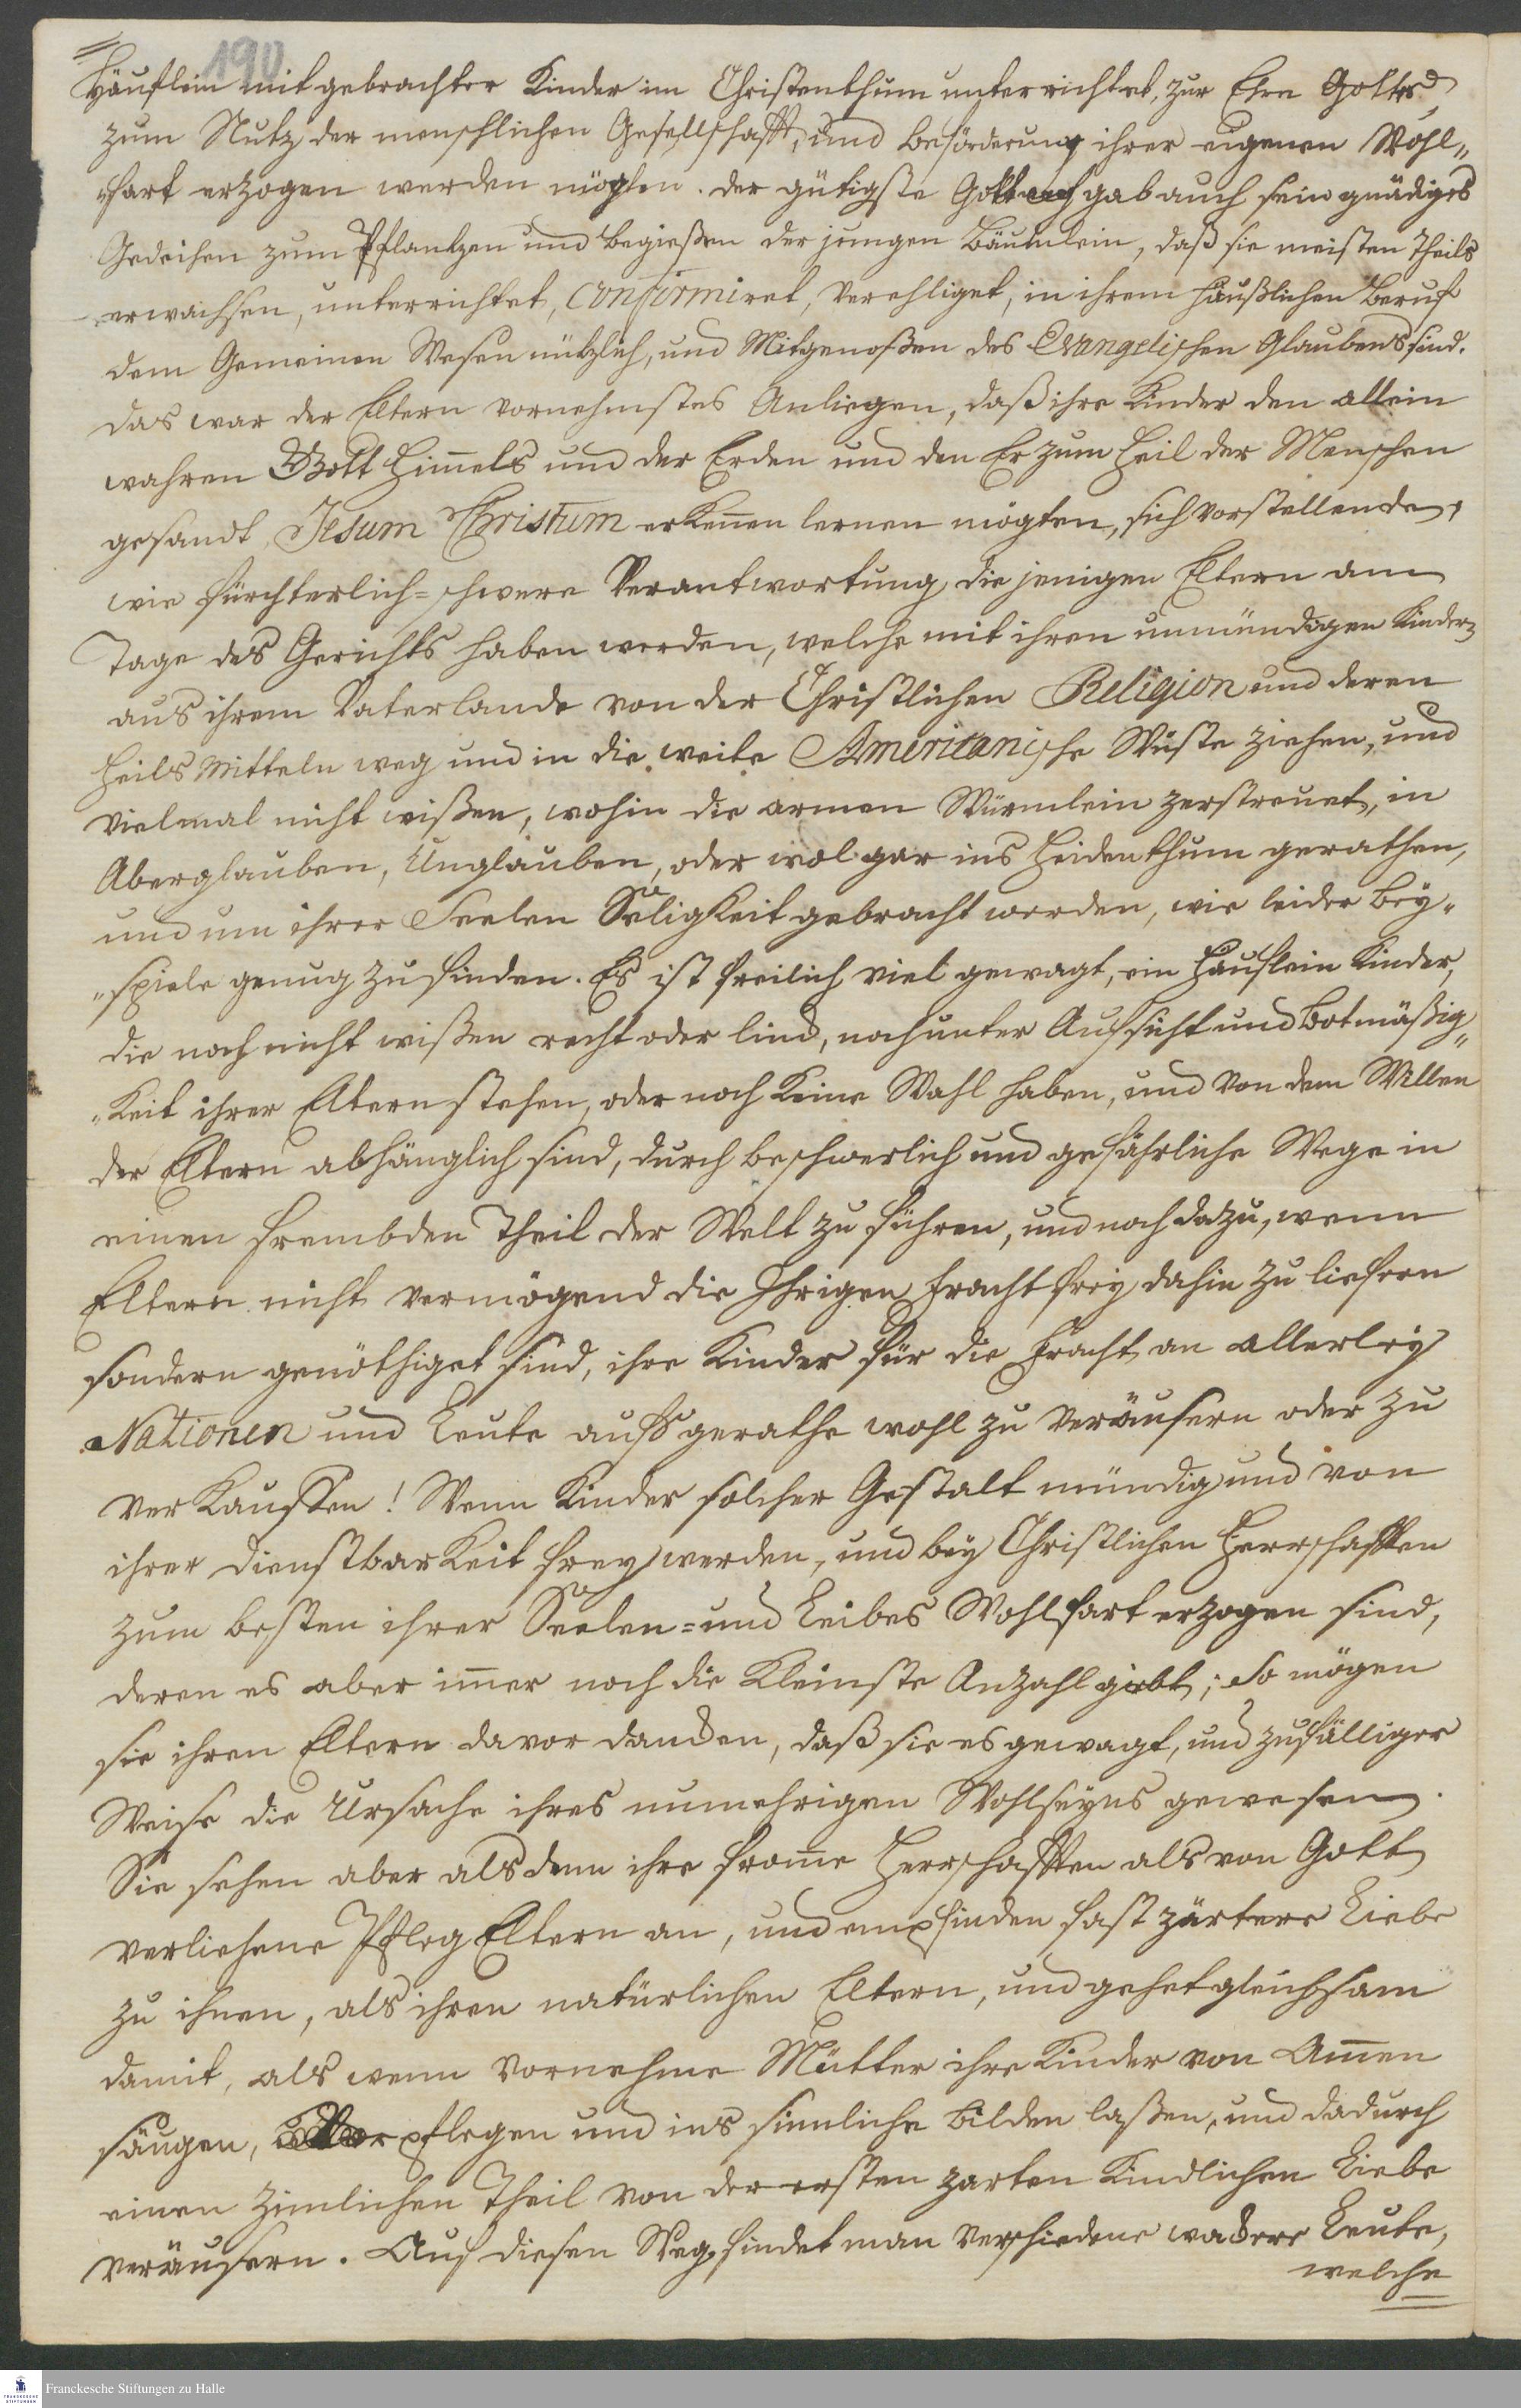 190
Häuflein mit gebrachter Kinder im Christenthum unterrichtet, zur Ehre Gottes,
zum Nutz der menschlichen Gesellschafft, und Beförderung ihrer eigenen Wohl„
„fart erzogen werden mögten. Der gütigste Gott gab auch sein gnädiges
Gedeihen zum Pflantzen und Begießen der jungen Bäumlein, daß sie meisten Theils
erwachsen, unterrichtet, Confirmiret, Verehliget, in ihrem häußlichen Beruf
dem Gemeinen Wesen nützlich, und Mitgenoßen des Evangelischen Glaubens sind.
Das war der Eltern vornehmstes Anliegen, daß ihre Kinder den allein
wahren Gott Himels und der Erden und den Er zum Heil der Menschen
gesandt, Jesum Christum erkenen lernen mögten, sich vorstellende,
wie fürchterlich=schwere Verantwortung die jenigen Eltern am
Tage des Gerichts haben werden, welche mit ihren unmündigen Kindern
aus ihrem Vaterlande von der Christlichen Religion und deren
Heils Mitteln weg und in die weite Americanische Wüste ziehen, und
vielmal nicht wißen, wohin die armen Würmlein zerstreuet, in
Aberglauben, Unglauben, oder wol gar ins Heidenthum gerathen,
und um ihrer Seelen Seligkeit gebracht werden, wie leider Bey„
„spiele genug zu finden. Es ist freilich viel gewagt, ein Häuflein Kinder,
die noch nicht wißen recht oder linc, noch unter Aufsicht und Botmäßig„
„keit ihrer Eltern stehen, oder noch keine Wahl haben, und von dem Willen
der Eltern abhänglich sind, durch beschwerlich und gefährliche Wege in
einen frembden Theil der Welt zu führen, und noch dazu, wenn
Eltern nicht vermögend die Ihrigen fracht frey dahin zu liefern
sondern genöthiget sind, ihre Kinder für die Fracht an allerley
Nationen und Leute aufs gerathe wohl zu veräusern oder zu
verkauffen! Wenn Kinder solcher Gestalt mündig und von
ihrer Dienstbarkeit frey werden, und bey Christlichen Herrschafften
zum besten ihrer Seelen= und Leibes Wohlfart erzogen sind,
deren es aber imer noch die kleinste Anzahl giebt; So mögen
sie ihren Eltern davor dancken, daß sie es gewagt, und zufälliger
Weise die Ursache ihres nunmehrigen Wohlseyns gewesen.
Sie sehen aber alsdenn ihre frome Herrschafften als von Gott
verliehene Pfleg Eltern an, und empfinden fast zärtere Liebe
zu ihnen, als ihren natürlichen Eltern, und gehet gleichsam
damit, als wenn vornehme Mütter ihre Kinder von Amen
säugen, pflegen und ins sinnliche bilden laßen, und dadurch
einen zimlichen Theil von der ersten zarten Kindlichen Liebe
veräusern. Auf diesen Weg findet man verschiedene wackere Leute,
welche
Franckesche Stiftungen zu Halle